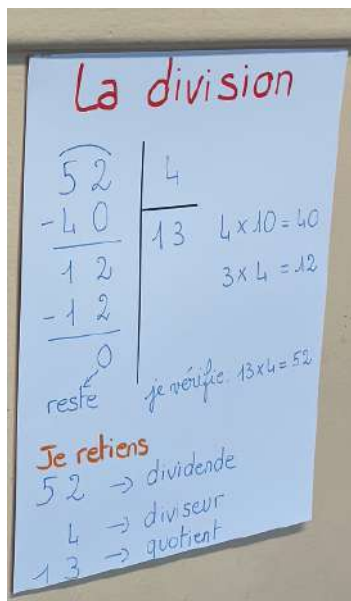 La division
52 4
-40 13 4 x 10 = 40
12 3 x 4 = 12
-12
0
reste je vérifie : 13 x 4 = 52
Je retiens
52 → dividende
4 → diviseur
13 → quotient